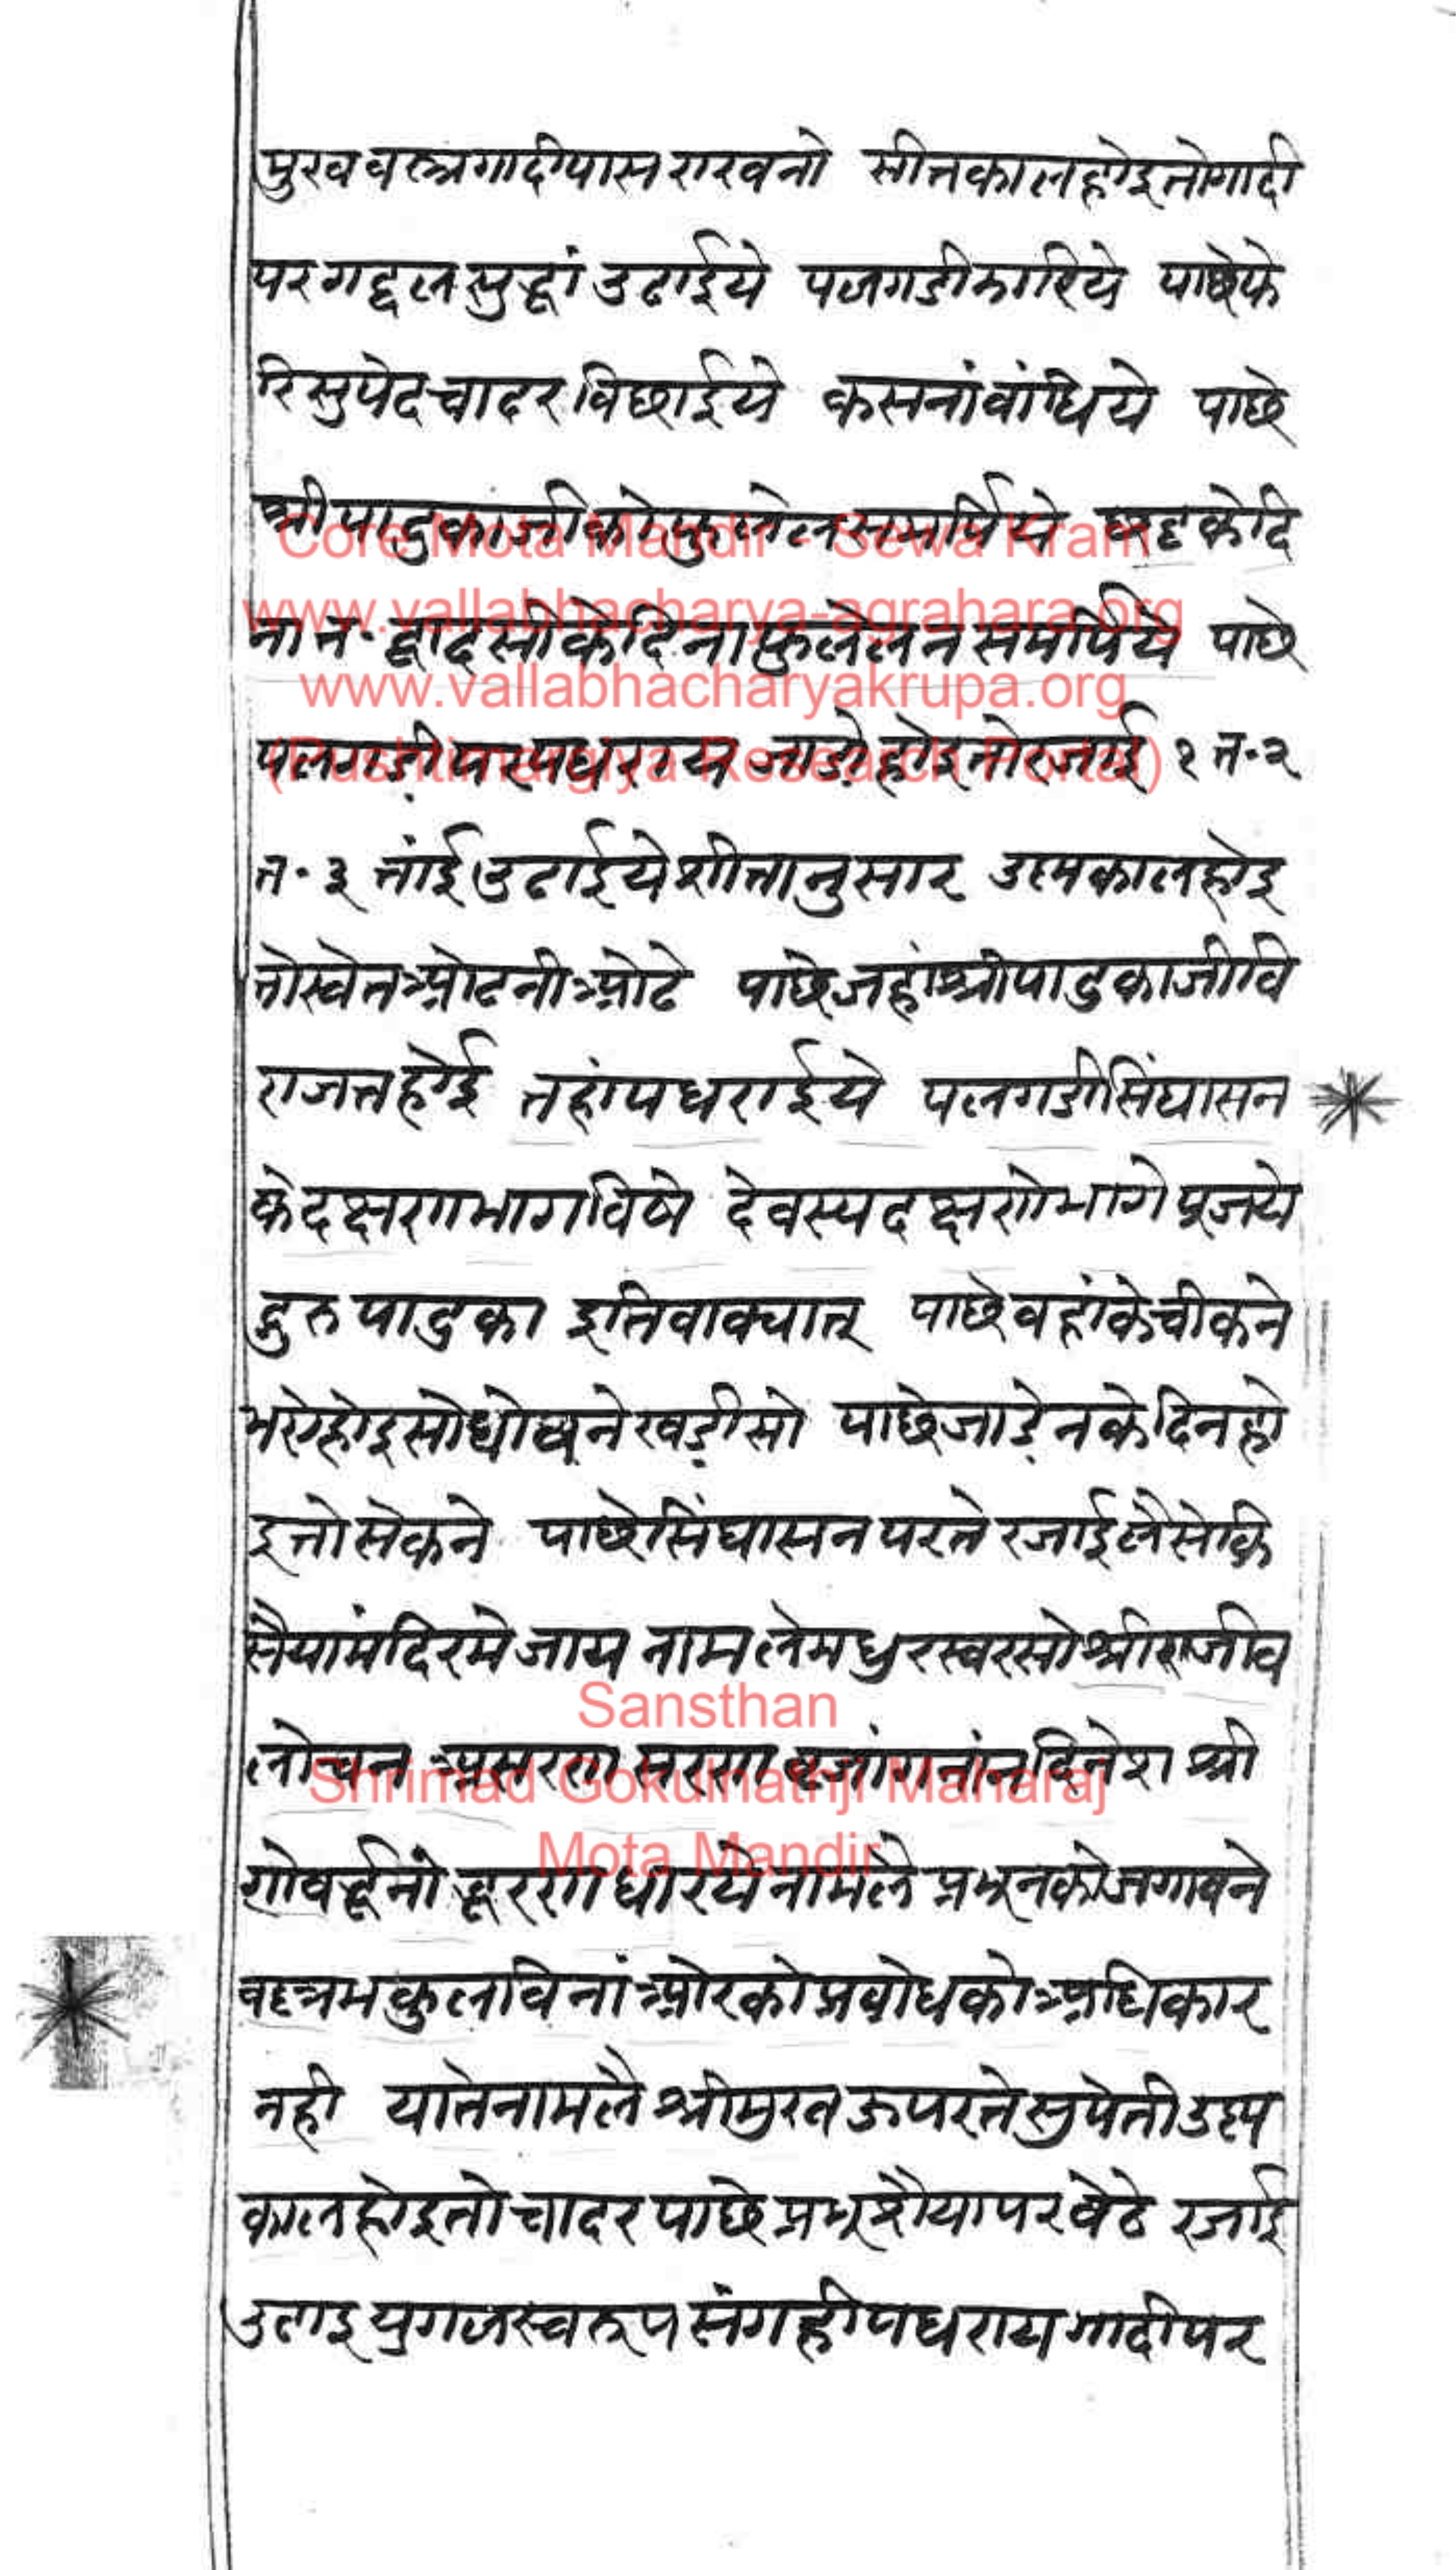 मुखवस्त्रगादीपासराखनो सीतकालहोइतोगादी
परगद्दलसुद्धां उढाईये पलगडीझारिये पाछेफे
रिसुपेदचादरबिछाईये कसनांबांधिये पाछे
श्रीपादुकाजीकोफुलेलसमर्पिये षष्टकेदि
ना त॰ द्वादसीकेदिनाफुलेलनसमर्पिये पाछे
पलगडीपरपधराय जाडोहोइतोरजाई १ त॰ २
त॰ ३ तांईउढाईयेशीतानुसार उष्मकालहोइ
तोस्वेतओढनीओढे पाछेजहांश्रीपादुकाजीवि
राजतहोई तहांपधराईये पलगडीसिंघासन
केदक्षणभागविषे देवस्यदक्षणेभागेपूजये
द्गुरुपादुका इतिवाक्यात् पाछेवहांकेचीकने
भरेहोइसोधोवनेखडीसो पाछेजाडेनकेदिनहो
इतोसेकने पाछेसिंघासनपरतेरजाईलैसेकि
सैयामंदिरमेजाय नामलेमधुरस्वरसोश्रीराजीव
लोचन अशरणशरण व्रजांगनांनदिनेश श्री
गोवर्द्धनोद्धरणधीरयेनामलै प्रभूनकोजगावने
वल्लभकुलविनांओरकोप्रबोधकोअधिकार
नही यातेनामलै श्रीमुखऊपरतेसुपेतीउष्म
कालहोइतोचादरपाछेप्रभूशैयापरबेठे रजाई
उठाइयुगलस्वरूपसंगहीपधरायगादीपर
Core Mota Mandir - Sewa Kram
www.vallabhacharya-agrahara.org
www.vallabhacharyakrupa.org
(Pushtimargiya Research Portal)
Sansthan
Shrimad Gokulnathji Maharaj
Mota Mandir